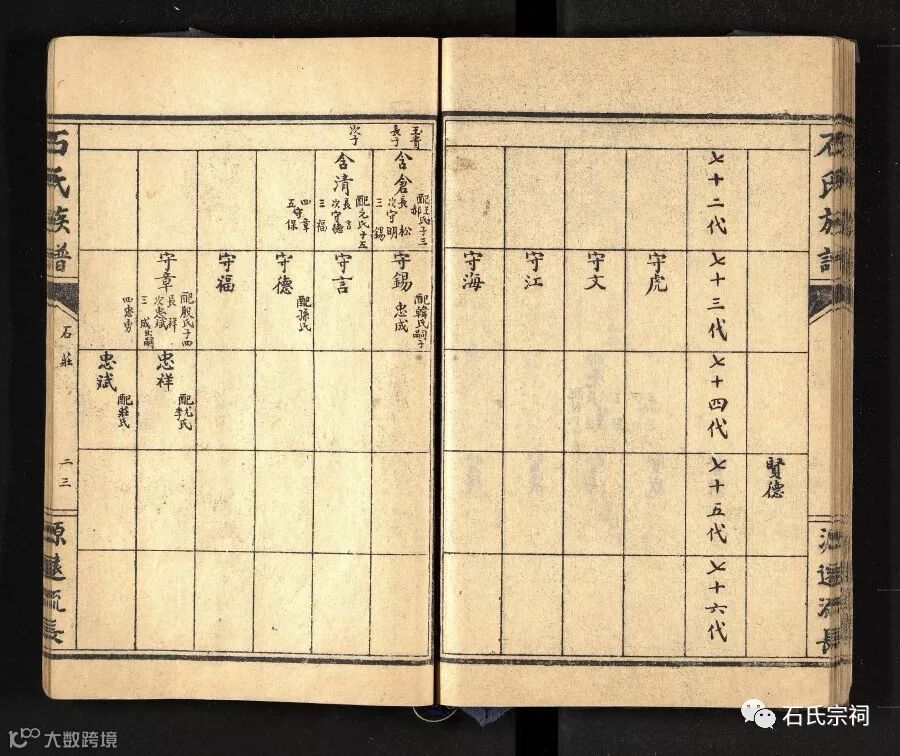 石氏族譜
源遠流長
賢德
七十二代
七十三代
七十四代
七十五代
七十六代
守虎
守文
守江
守海
玉書
長子
含倉
配王氏子三
長松
次守明
三錫
守錫
配韓氏嗣子
忠成
次子
含清
配元氏子五
長言
次守德
三福
四章
五守保
守言
守德
配孫氏
守福
守章
配殷氏子四
長祥
次忠斌
三成出嗣
四忠勇
忠祥
配尤氏
忠斌
配莊氏
石氏族譜
石莊
二三
源遠流長
石氏宗祠
大数跨境